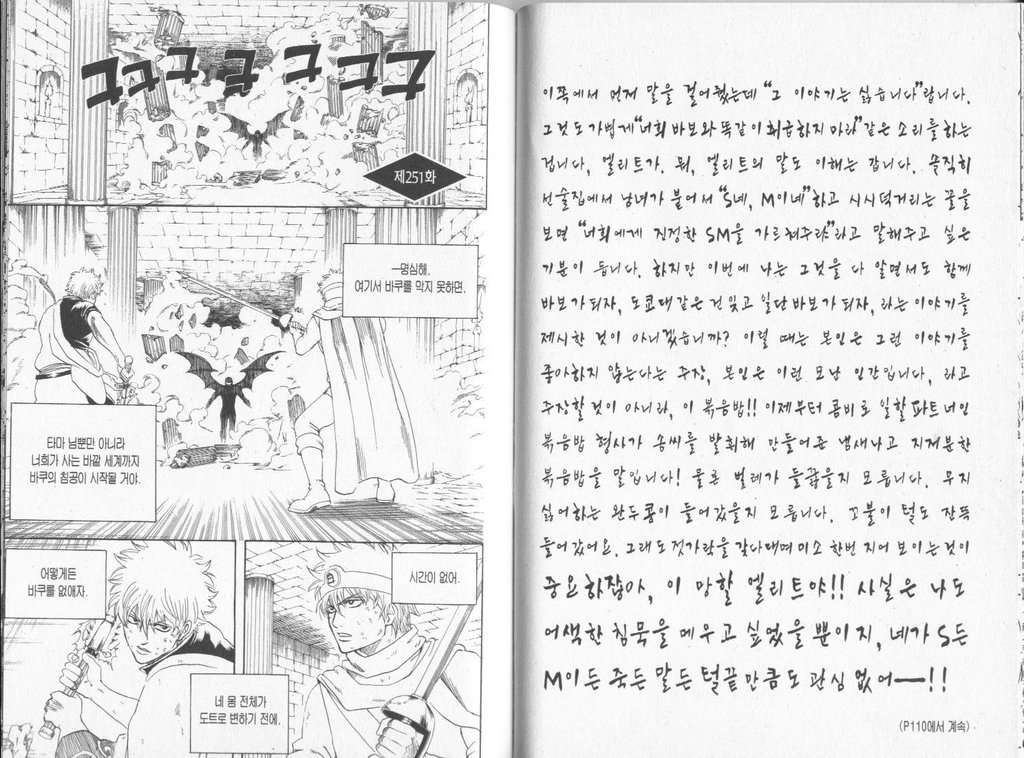 그그그그그그그
제251화
—명심해.
여기서 바쿠를 막지 못하면.
타마 님뿐만 아니라
너희가 사는 바깥 세계까지
바쿠의 침공이 시작될 거야.
어떻게든
바쿠를 없애자.
시간이 없어.
네 몸 전체가
도트로 변하기 전에.
이쪽에서 먼저 말을 걸어줬는데 “그 이야기는 싫습니다”랍니다.
그것도 가볍게 “너희 바보와 똑같이 취급하지 마라” 같은 소리를 하는
겁니다, 엘리트가. 뭐, 엘리트의 말도 이해는 갑니다. 솔직히
선술집에서 남녀가 붙어서 “S네, M이네”하고 시시덕거리는 꼴을
보면 “너희에게 진정한 SM을 가르쳐주랴”라고 말해주고 싶은
기분이 듭니다. 하지만 이번에 나는 그것을 다 알면서도 함께
바보가 되자, 도쿄대 같은 건 잊고 일단 바보가 되자, 라는 이야기를
제시한 것이 아니겠습니까? 이럴 때는 본인은 그런 이야기를
좋아하지 않는다는 주장, 본인은 이런 모난 인간입니다, 라고
주장할 것이 아니라, 이 볶음밥!! 이제부터 콤비로 일할 파트너인
볶음밥 형사가 솜씨를 발휘해 만들어준 냄새나고 지저분한
볶음밥을 말입니다! 물론 벌레가 들끓을지 모릅니다. 무지
싫어하는 완두콩이 들어갔을지 모릅니다. 꼬불이 털도 잔뜩
들어갔어요. 그래도 젓가락을 갖다대며 미소 한번 지어 보이는 것이
중요하잖아, 이 망할 엘리트야!! 사실은 나도
어색한 침묵을 메우고 싶었을 뿐이지, 네가 S든
M이든 죽든 말든 털끝만큼도 관심 없어—!!
(P110에서 계속)